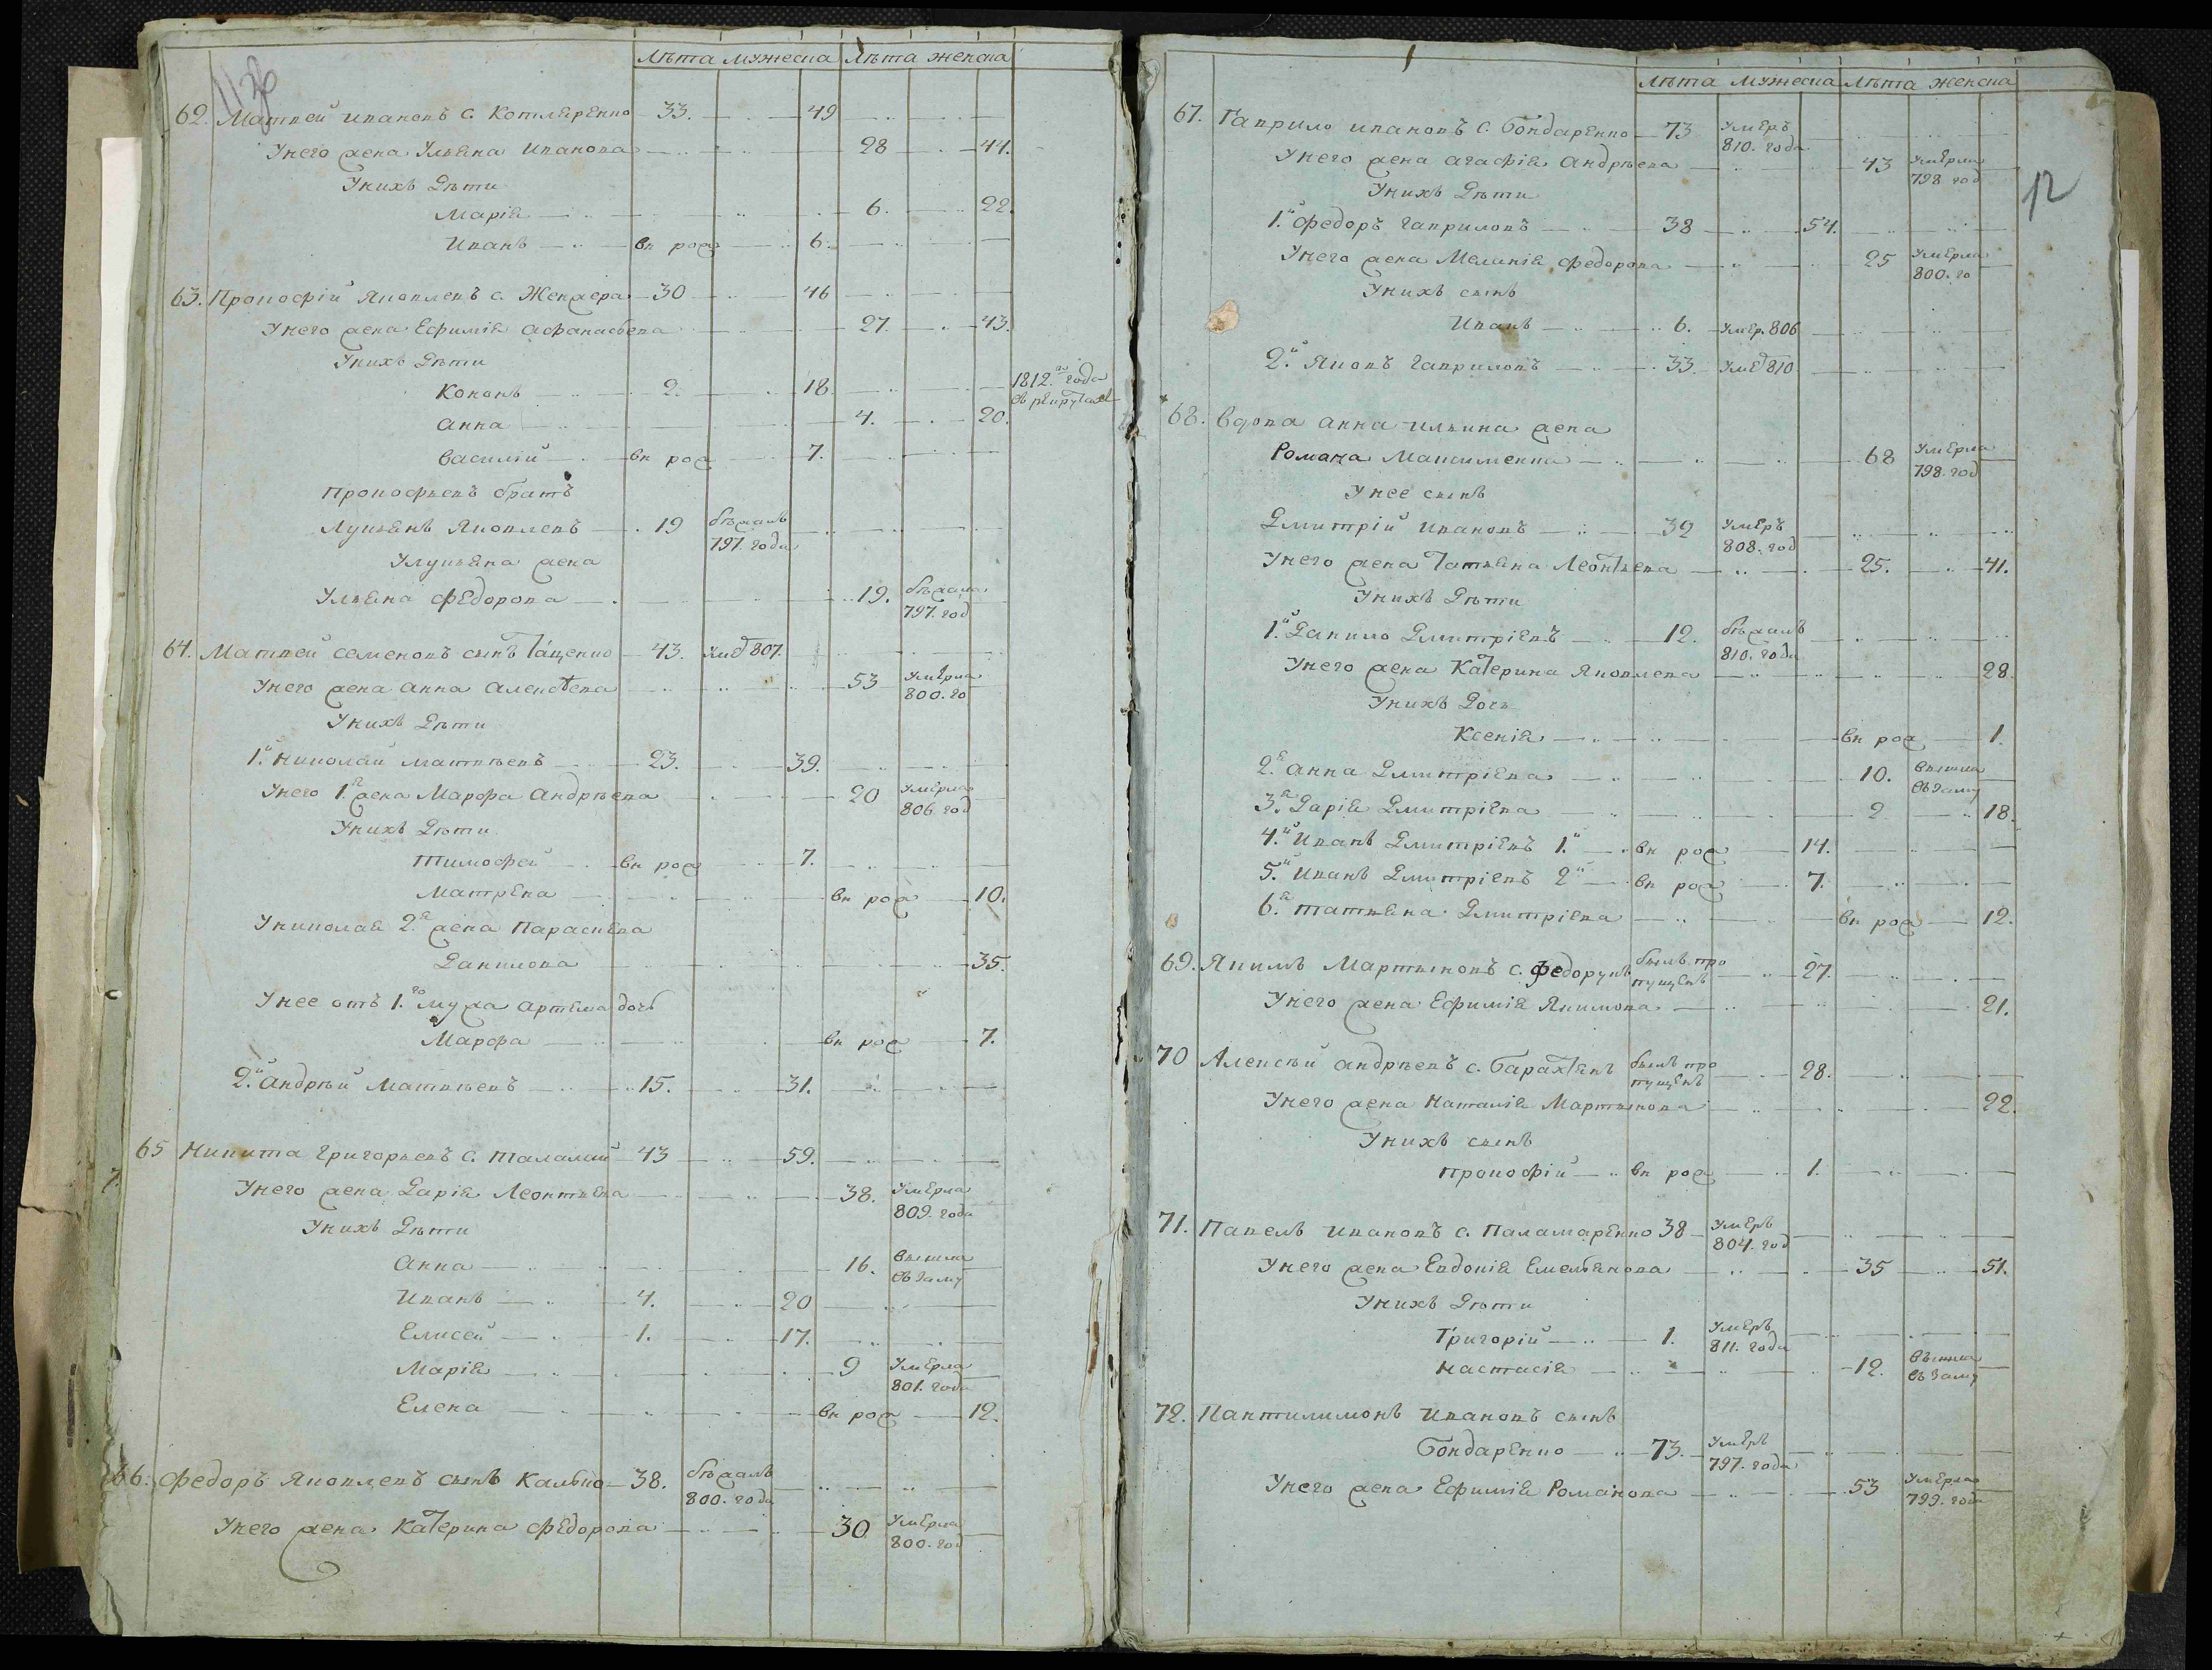 Лѣта мужеска Лѣта женска
62. Матвей Ивановъ с. Котляренко 33. 49
У него жена Ульяна Иванова 28 44.
У нихъ дѣти
Марія 6. 22.
Иванъ вн рож 6.
63. Прокофій Яковлевъ с. 30 46
У него жена Ефимія Афанасьева 27. 43.
У нихъ дѣти
Кононъ 2. 18. 1812.го года
въ рекрутах
Анна 4. 20.
Василій вн рож 7.
Прокофьевъ братъ
Лукьянъ Яковлевъ 19 бѣжалъ
797. года
У Лукьяна жена
Ульяна Федорова 19. бѣжала
797. год
64. Матвей Семеновъ сынъ Тащенко 43. 807.
У него жена Анна Алексѣева 53 умерла
800. го
У нихъ дѣти
1.й Николай Матвѣевъ 23. 39.
У него 1.я жена Марфа Андрѣева 20 умерла
806 год
У нихъ дѣти
Тимофей вн рож 7.
Матрена вн рож 10.
У Николая 2.я жена Параскева
Данилова 35.
У нее отъ 1.го мужа Артема дочь
Марфа вн рож 7.
2.й Андрѣй Матвѣевъ 15. 31.
65 Никита Григорьевъ с. Талалай 43 59.
У него жена Дарія Леонтьева 38. умерла
809. года
У нихъ дѣти
Анна 16. вышла
въ заму
Иванъ 4. 20
Елисей 1. 17.
Марія 9 умерла
801. года
Елена вн рож 12.
66. Федоръ Яковлевъ сынъ Калько 38. бѣжалъ
800. года
У него жена Катерина Федорова 30 умерла
800. год
Лѣта мужеска Лѣта женска
12
67. Гаврило Ивановъ с. Бондаренко 73 умеръ
810. года
У него жена Агафія Андрѣева 43 умерла
798 год
У нихъ дѣти
1.й Федоръ Гавриловъ 38 54.
У него жена Меланія Федорова 25 умерла
800. го
У нихъ сынъ
Иванъ 6. умер. 806
2.й Яковъ Гавриловъ 33. 810
68. Вдова Анна Ильина жена
Романа Максименка 68 умерла
798. год
У нее сынъ
Дмитрій Ивановъ 39 умеръ
808. год
У него жена Татьяна Леонтьева 25. 41.
У нихъ дѣти
1.й Данило Дмитріевъ 12. бѣжалъ
810. года
У него жена Катерина Яковлева 28.
У нихъ дочь
Ксенія вн рож 1.
2.я Анна Дмитріева 10. вышла
въ заму
3.я Дарія Дмитріева 2 18.
4.й Иванъ Дмитріевъ 1.й вн рож 14.
5.й Иванъ Дмитріевъ 2й вн рож 7.
6.я Татьяна Дмитріева вн рож 12.
69. Якимъ Мартыновъ с. Федорукъ былъ про 27.
пущенъ
У него жена Ефимія Якимова 21.
70 Алексѣй Андрѣевъ с. Барахтянъ былъ про 28.
пущенъ
У него жена Наталія Мартынова 22.
У нихъ сынъ
Прокофій вн рож 1.
71. Павелъ Ивановъ с. Паламаренко 38 умеръ
804. год
У него жена Евдокія Емельянова 35 51.
У нихъ дѣти
Григорій 1. умеръ
811. года
Настасія 12. вышла
въ заму
72. Пантилимонъ Ивановъ сынъ
Бондаренко 73. умеръ
797. года
У него жена Ефимія Романова 53 умерла
799. года